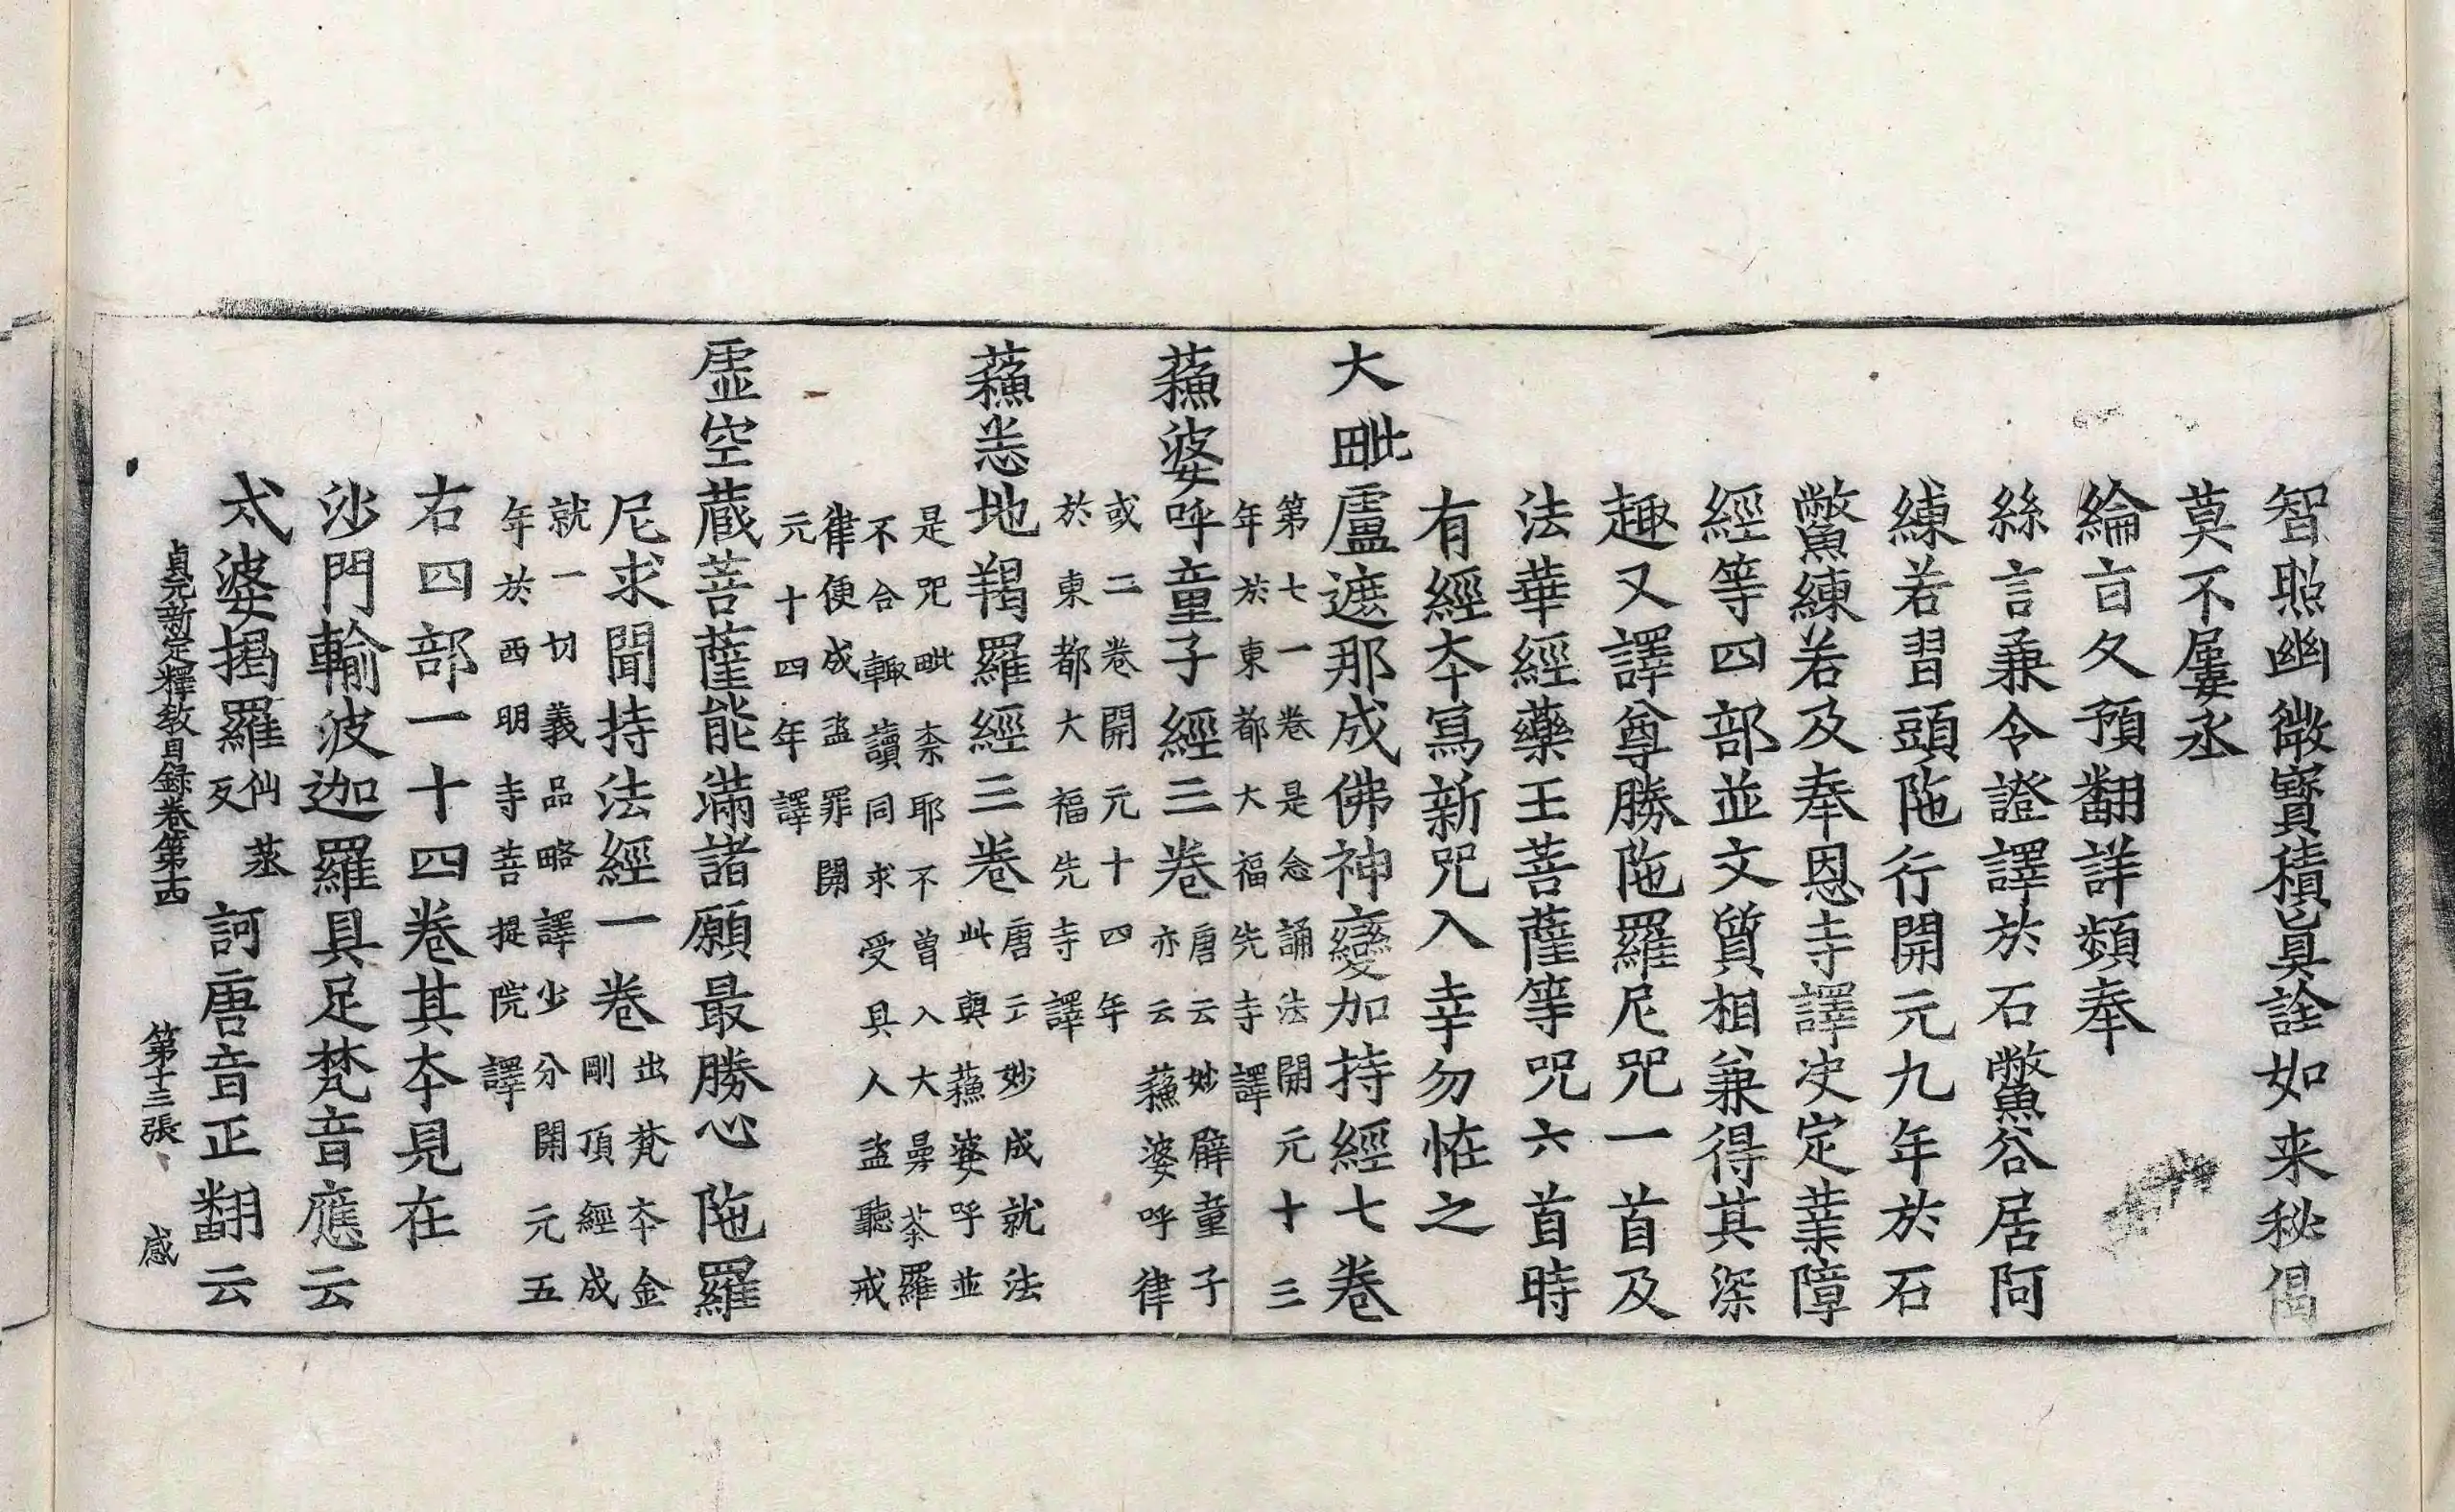 智照幽微寶積真詮如来秘偈
莫不屢丞
綸言久預翻詳頻奉
絲言兼令證譯於石鱉谷居阿
練若習頭陁行開元九年於石
鱉練若及奉恩寺譯决定業障
經等四部並文質相兼得其深
趣又譯尊勝陁羅尼咒一首及
法華經藥王菩薩等咒六首時
有經夲寫新咒入幸勿恠之
大毗盧遮那成佛神變加持經七卷
第七一卷是念誦法開元十三
年於東都大福先寺譯
蘓婆呼童子經三卷
唐云妙臂童子
亦云蘓婆呼律
或二卷開元十四年
於東都大福先寺譯
蘓悉地羯羅經三卷
唐云妙成就法
此與蘓婆呼並
是咒毗柰耶不曽入大曼荼羅
不合輙讀同求受具人盗聽戒
律便成盗罪開
元十四年譯
虛空蔵菩薩能滿諸願最勝心陁羅
尼求聞持法經一卷
出梵夲金
剛頂經成
就一切義品略譯少分開元五
年於西明寺菩提院譯
右四部一十四卷其夲見在
沙門輸波迦羅具足梵音應云
戍婆揭羅
仙蒸
反
訶唐音正翻云
貞元新定釋教目録卷第十四 第十三張 感